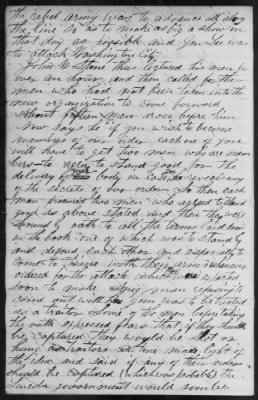 the rebel army was to advance all along
the line so as to make as big a show on
that day as possible and Gen Lee was
to attack Washington City.
John W Stone thus lectured his men for
over an hour, and then called for the
men who had not been taken into the
new organization to come forward
About fifteen men arose before him
Now says he if you wish to become
members of our order each one of you
will have to get two men who are mem
bers to agree to stand good for the
delivery of your body in case you reveal any
of the secrets of our order. So then each
man procured two men who agreed to stand
good as above stated and then they were
bound by oath to all the terms laid down
in the book one of which was to stand by
and defend each other, and especially to
come to with their arms whenever
ordered for the attack which was
soon to make Any man refusing to
come out with his gun was to be treated
as a traitor Some of the men before taking
the oath expressed fears that if they should
be captured they would be shot or
hung as traitors Stone made light of
the idea and said if any of their order
should be captured (which was probable) the
Lincoln government would soon be